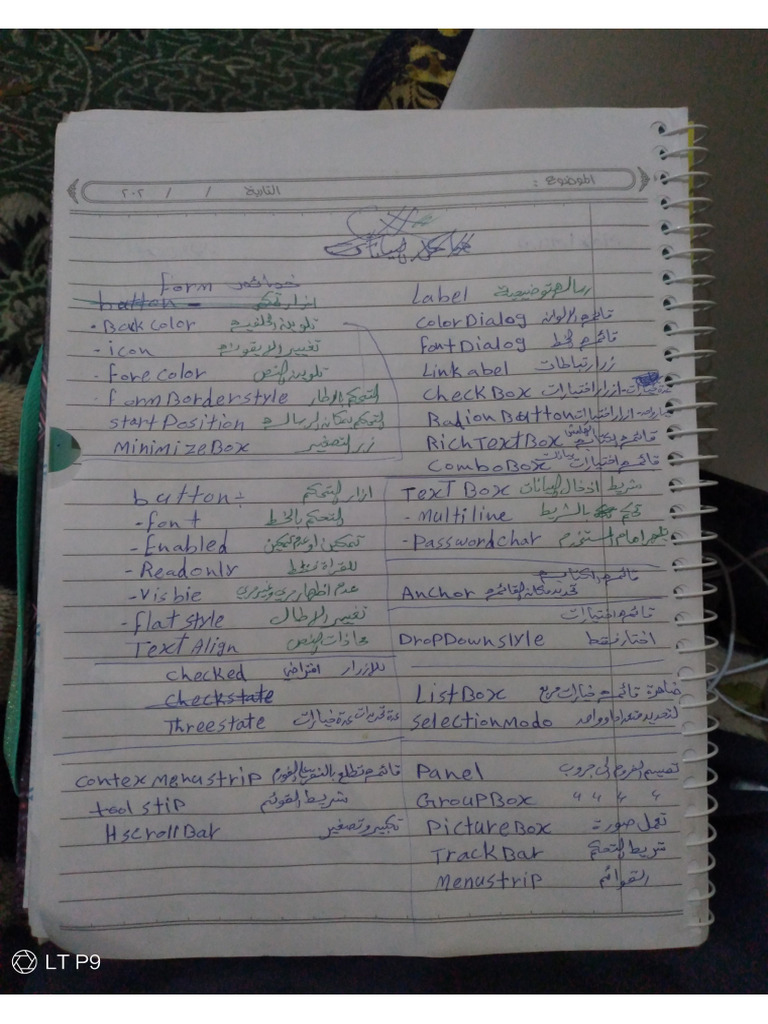 الموضوع :
التاريخ / / ٢٠٢
خصائص Form
button - ازرار تحكم
- Back color تلوين الخلفيه
- icon تغيير الايقونه
- Fore color تلوين النص
- formBorderstyle التحكم بالإطار
startPosition التحكم بمكان
MinimizeBox زر التصغير
button : ازرار التحكم
- font التحكم بالخط
- Enabled تمكين او عدم تمكين
- Readonly للقراءة فقط
- Visbie عدم اظهار
- flat style تغيير الاطار
Text Align محاذات النص
checked للازرار افتراضي
checkstate
Threestate خيارات
contexmenustrip قائمه تطلع
tool stip شريط القوائم
HscrollBar تكبير وتصغير
Label رساله توضيحية
colorDialog قائمه الالوان
fontDialog قائمه الخط
Linkabel زر ارتباطات
checkBox ازرار اختيارات
RadionButton ازرار اختيارات
RichTextBox قائمه
ComboBox قائمه اختيارات
TextBox شريط ادخال البيانات
- Multiline تحكم بالشريط
- Passwordchar
Anchor تحديد مكان القائمه
قائمه اختيارات
DropDownslyle اختار فقط
ListBox قائمه خيارات مربع
selectionModo لتحديد
Panel تقسيم الفروم الى جروب
GroupBox " " " "
PictureBox تحمل صورة
TrackBar شريط التحكم
Menustrip القوائم
LT P9